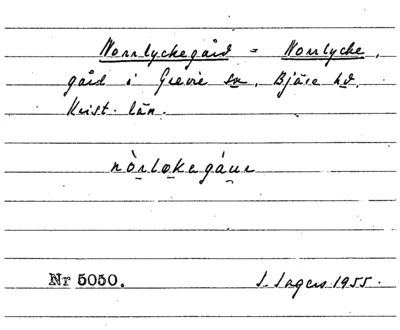 Norrlyckegård = Norrlycke,
gård i Grevie sn, Bjäre hd,
Krist. län.
nòrløkagáur
Nr 5050.
S. Sagers 1955.